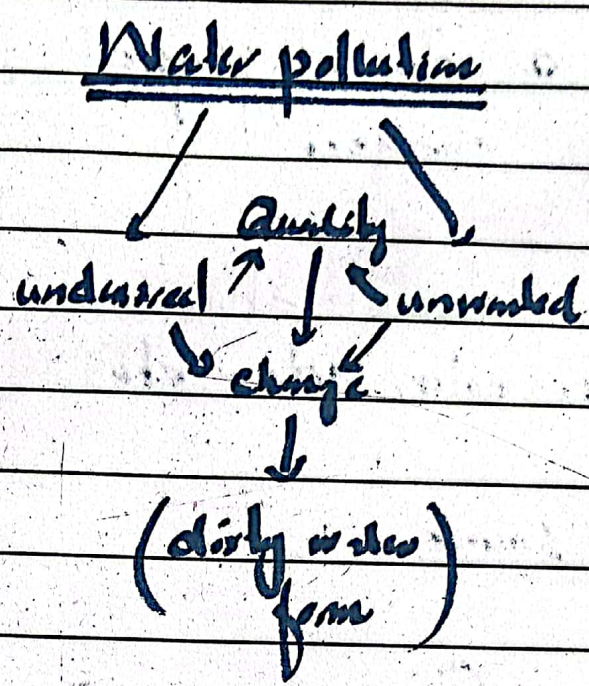 Water pollution
Quality
undesired unwanted
change
(dirty water
form)